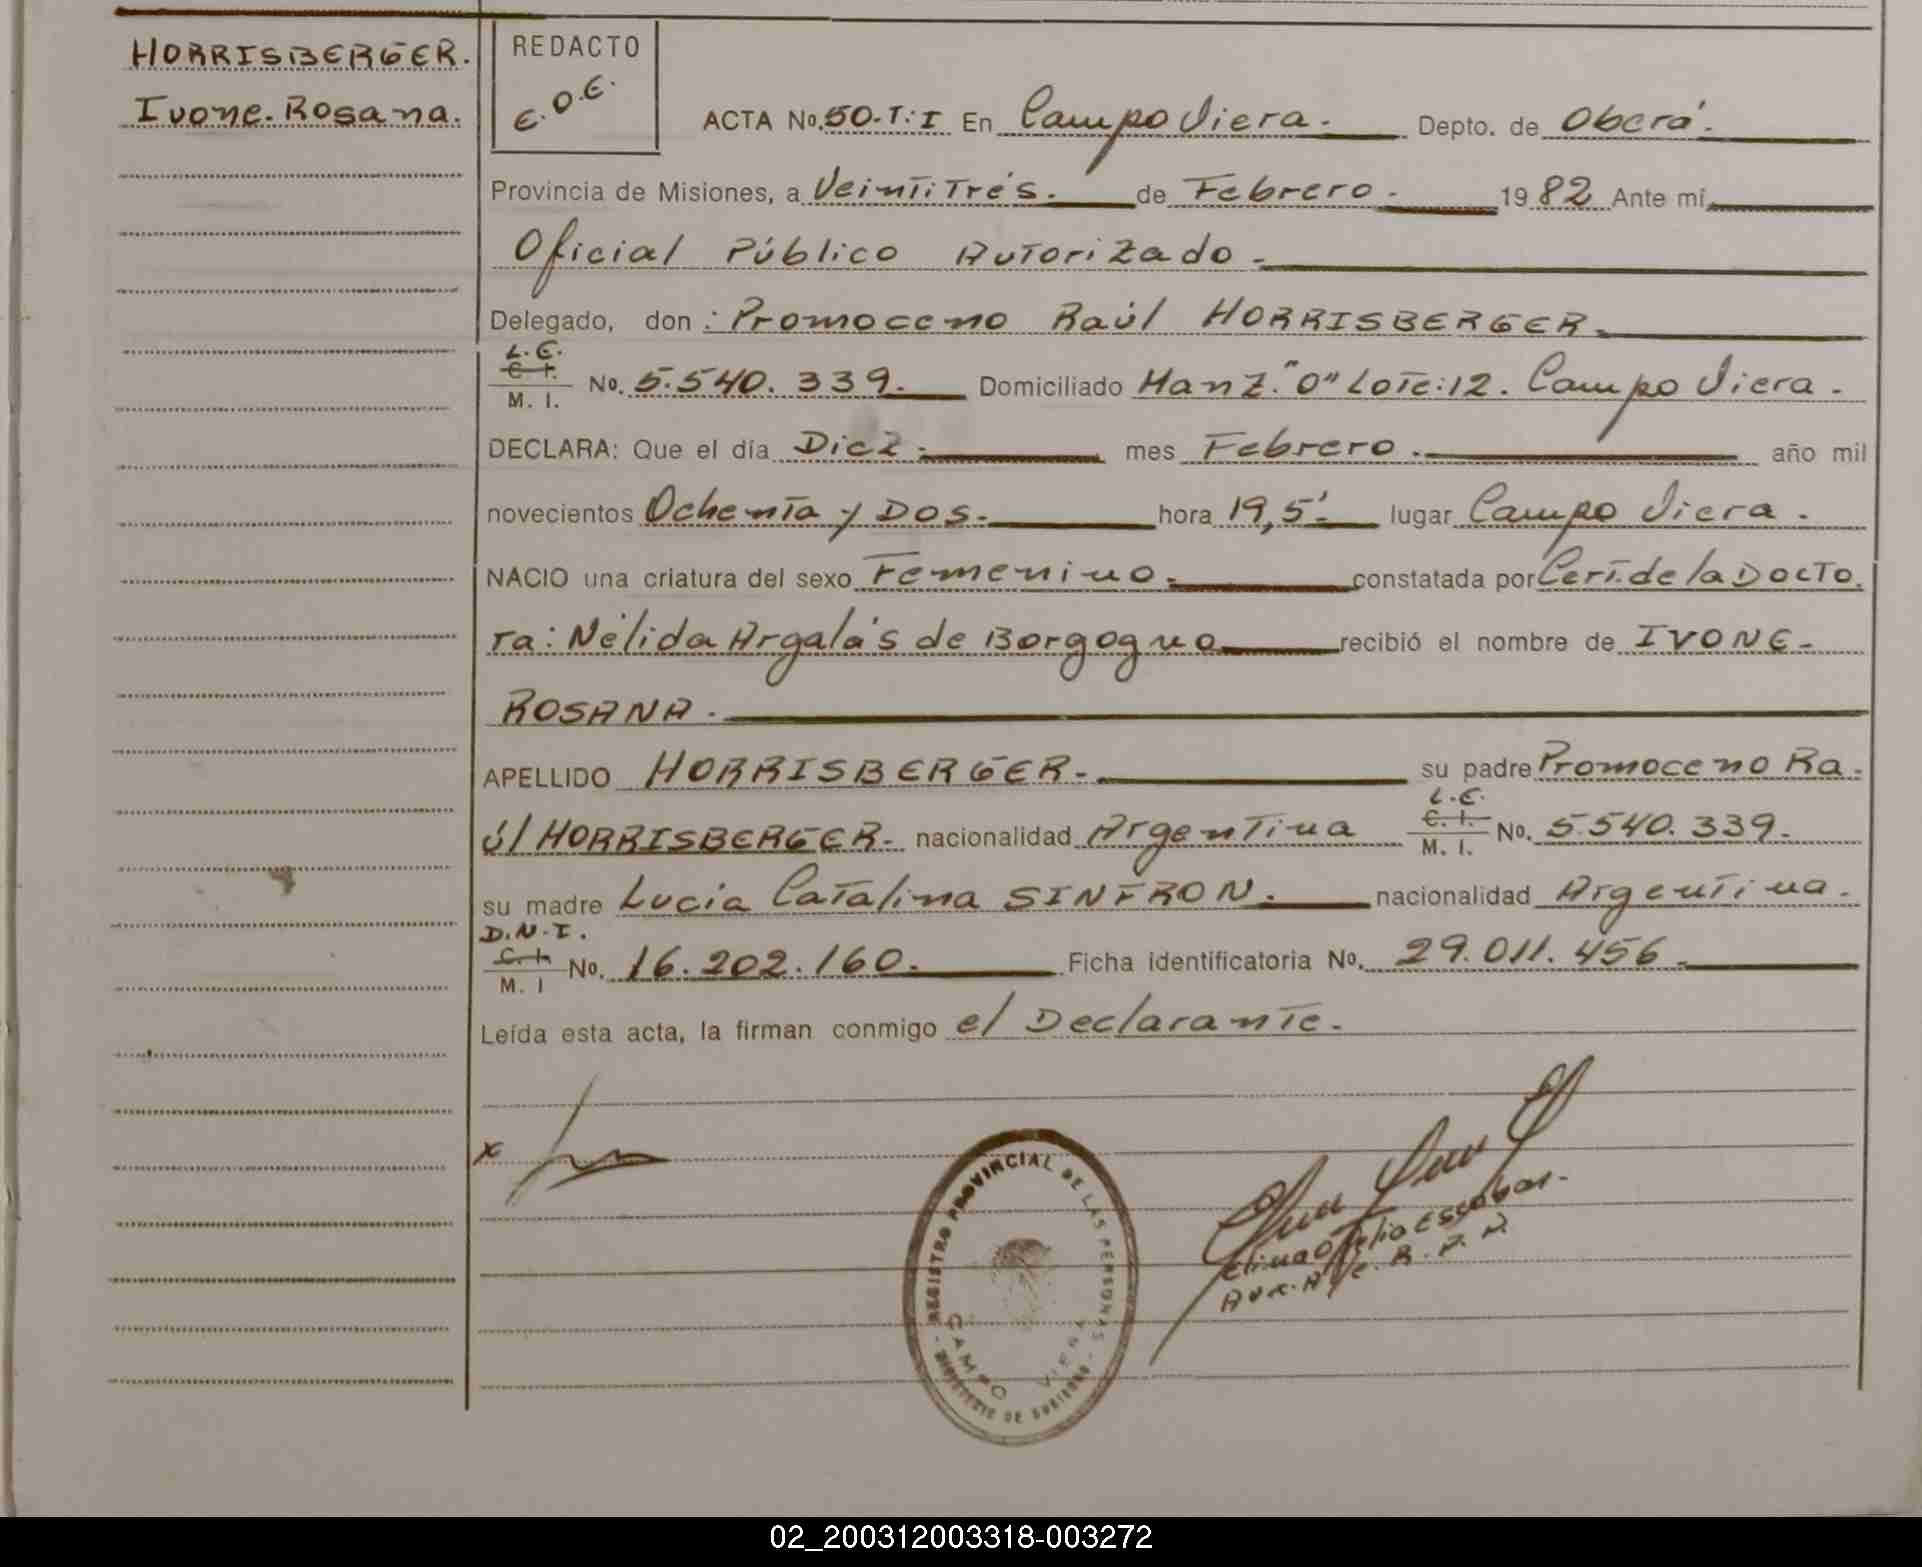 HORRISBERGER.
Ivone. Rosana.
REDACTO
E.O.E.
ACTA No. 50-T: I En Campo Viera. Depto. de Oberá.
Provincia de Misiones, a Veintitrés. de Febrero. 1982 Ante mí
Oficial Público Autorizado.
Delegado, don: Promoceno Raúl HORRISBERGER.
L.E.
C. I.
M. I. No. 5.540.339. Domiciliado Manz. "O" Lote: 12. Campo Viera.
DECLARA: Que el día Diez. mes Febrero. año mil
novecientos Ochenta y Dos. hora 19,5'. lugar Campo Viera.
NACIO una criatura del sexo Femenino. constatada por Cert. de la Docto.
ra: Nélida Argalás de Borgogno recibió el nombre de IVONE-
ROSANA.
APELLIDO HORRISBERGER. su padre Promoceno Ra-
úl HORRISBERGER. nacionalidad Argentina L.E. C. I. M. I. No. 5.540.339.
su madre Lucia Catalina SINFRON. nacionalidad Argentina.
D.N.I.
C. I.
M. I No. 16.202.160. Ficha identificatoria No. 29.011.456.
Leída esta acta, la firman conmigo el Declarante.
x
REGISTRO PROVINCIAL DE LAS PERSONAS
CAMPO VIERA
MINISTERIO DE GOBIERNO
Escobar.
02_200312003318-003272